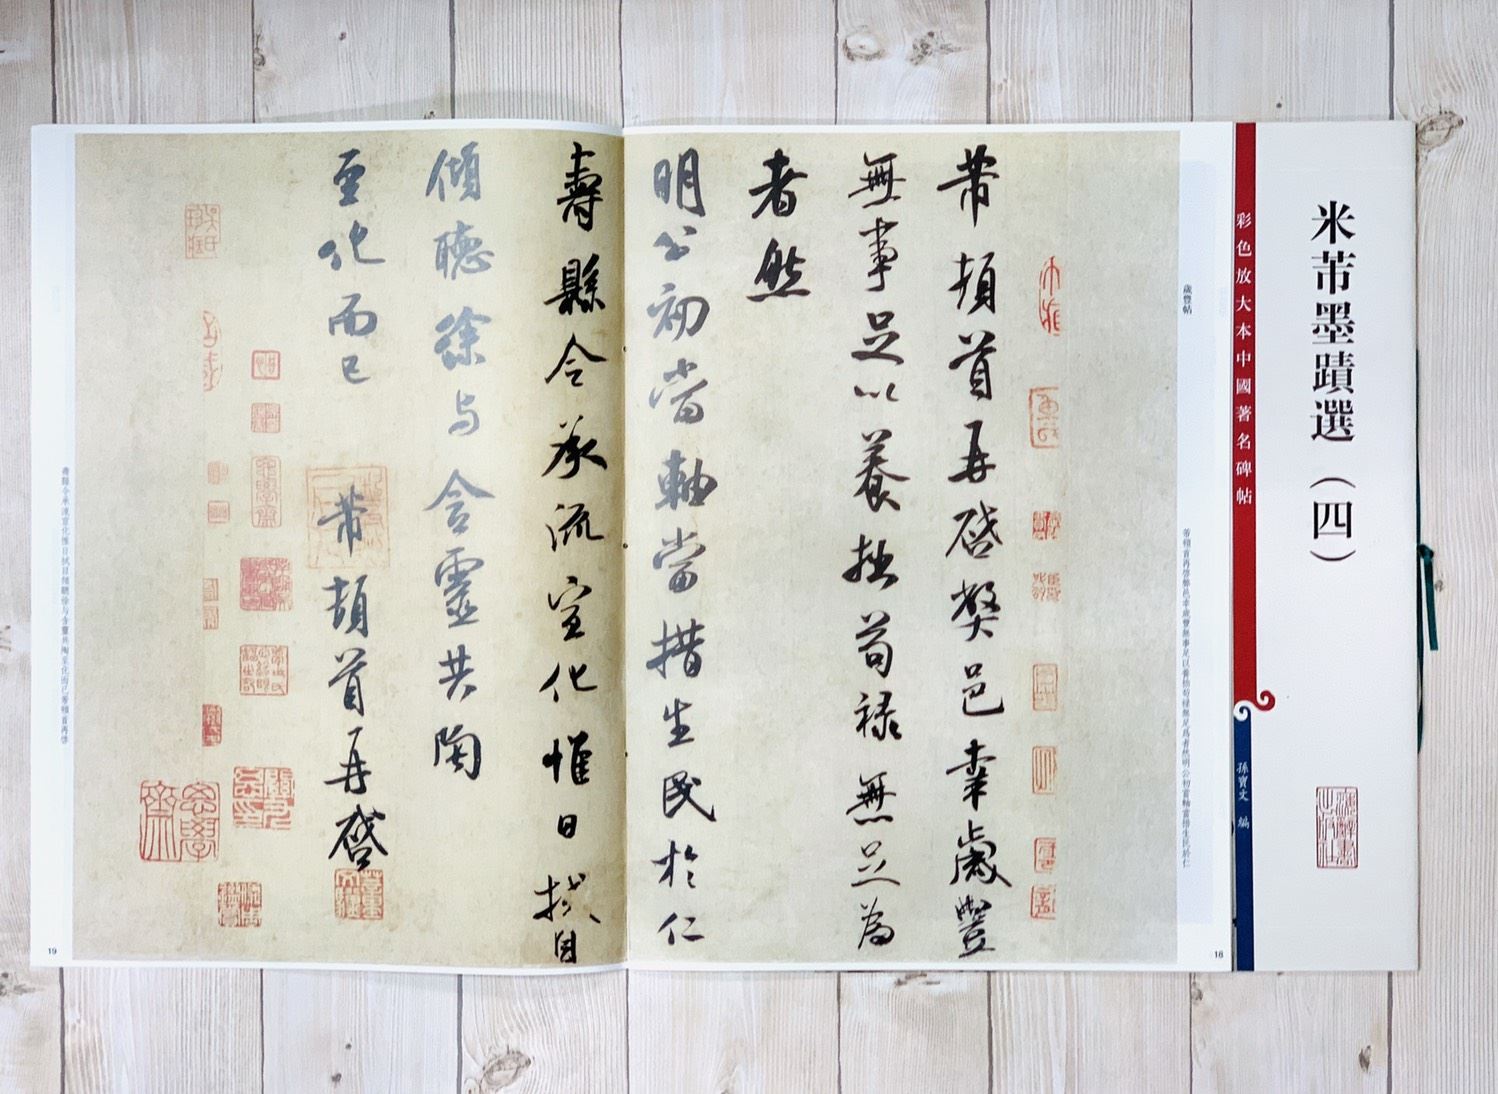 米芾墨蹟選（四）
彩色放大本中國著名碑帖
孫寶文 編
歲豐帖
芾頓首再啓弊邑幸歲豐無事足以養拙苟祿無足爲者然明公初當軸當措生民於仁
18
芾頓首再啓弊邑幸歲豐
無事足以養拙苟祿無足為
者然
明公初當軸當措生民於仁
壽縣令承流宣化惟日拭目
傾聽徐与含靈共陶
至化而已 芾頓首再啓
壽縣令承流宣化惟日拭目傾聽徐与含靈共陶至化而已芾頓首再啓
19